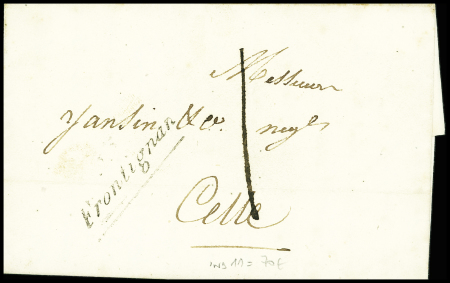 Messieurs
Jansin & Co. negts
Frontignan
Cette
ind 11 = 70€